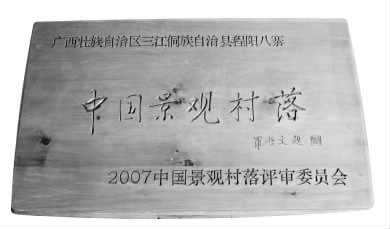 广西壮族自治区三江侗族自治县程阳八寨
中国景观村落
罗哲文题
2007中国景观村落评审委员会